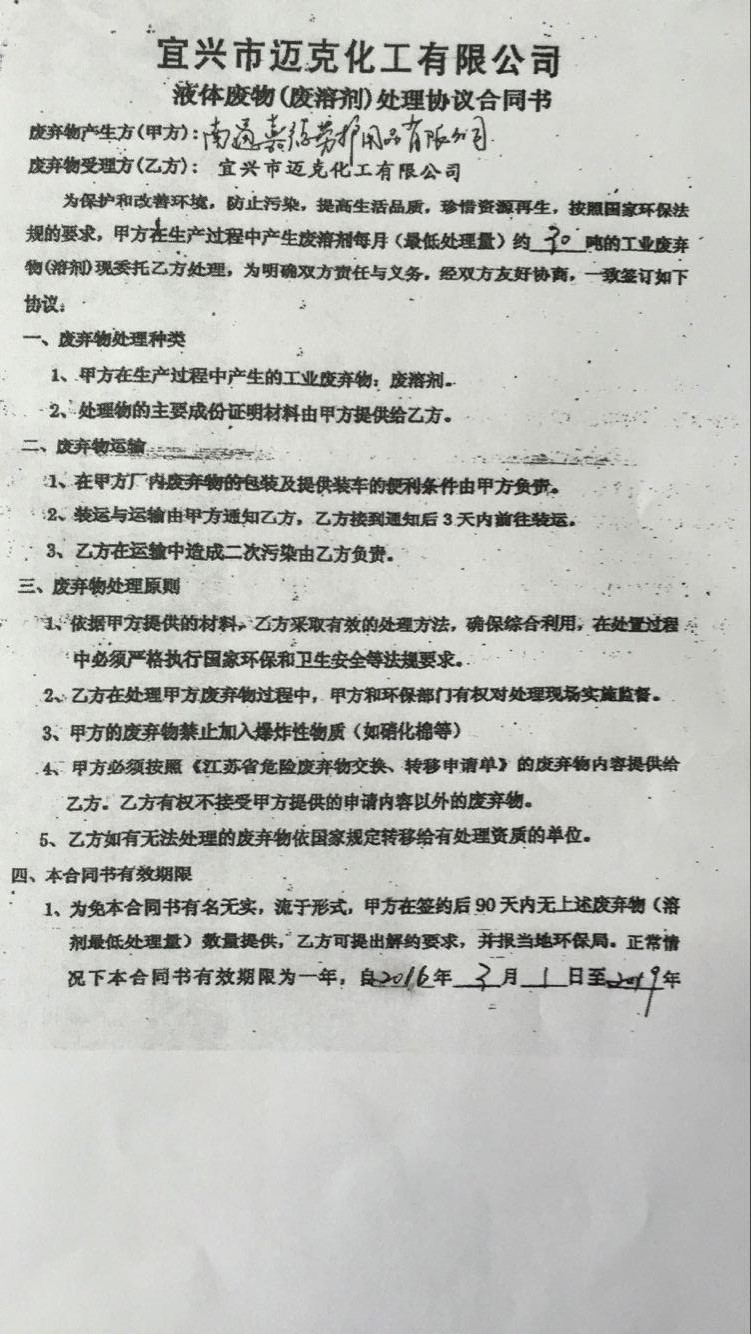 宜兴市迈克化工有限公司
液体废物(废溶剂)处理协议合同书
废弃物产生方(甲方):南通嘉得劳护用品有限公司
废弃物受理方(乙方): 宜兴市迈克化工有限公司
为保护和改善环境，防止污染，提高生活品质，珍惜资源再生，按照国家环保法
规的要求，甲方在生产过程中产生废溶剂每月（最低处理量）约 30 吨的工业废弃
物(溶剂)现委托乙方处理，为明确双方责任与义务，经双方友好协商，一致签订如下
协议:
一、废弃物处理种类
1、甲方在生产过程中产生的工业废弃物: 废溶剂。
2、处理物的主要成份证明材料由甲方提供给乙方。
二、废弃物运输
1、在甲方厂内废弃物的包装及提供装车的便利条件由甲方负责。
2、装运与运输由甲方通知乙方，乙方接到通知后3天内前往装运。
3、乙方在运输中造成二次污染由乙方负责。
三、废弃物处理原则
1、依据甲方提供的材料，乙方采取有效的处理方法，确保综合利用，在处置过程
中必须严格执行国家环保和卫生安全等法规要求。
2、乙方在处理甲方废弃物过程中，甲方和环保部门有权对处理现场实施监督。
3、甲方的废弃物禁止加入爆炸性物质（如硝化棉等）
4、甲方必须按照《江苏省危险废弃物交换、转移申请单》的废弃物内容提供给
乙方。乙方有权不接受甲方提供的申请内容以外的废弃物。
5、乙方如有无法处理的废弃物依国家规定转移给有处理资质的单位。
四、本合同书有效期限
1、为免本合同书有名无实，流于形式，甲方在签约后90天内无上述废弃物（溶
剂最低处理量）数量提供，乙方可提出解约要求，并报当地环保局。正常情
况下本合同书有效期限为一年，自2016年 3 月 1 日至2019年